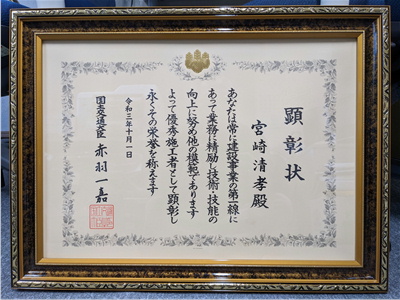 顕彰状
宮崎清孝殿
あなたは常に建設事業の第一線に
あって業務に精励し技術・技能の
向上に努め他の模範であります
よって優秀施工者として顕彰し
永くその栄誉を称えます
令和三年十月一日
国土交通大臣 赤羽一嘉